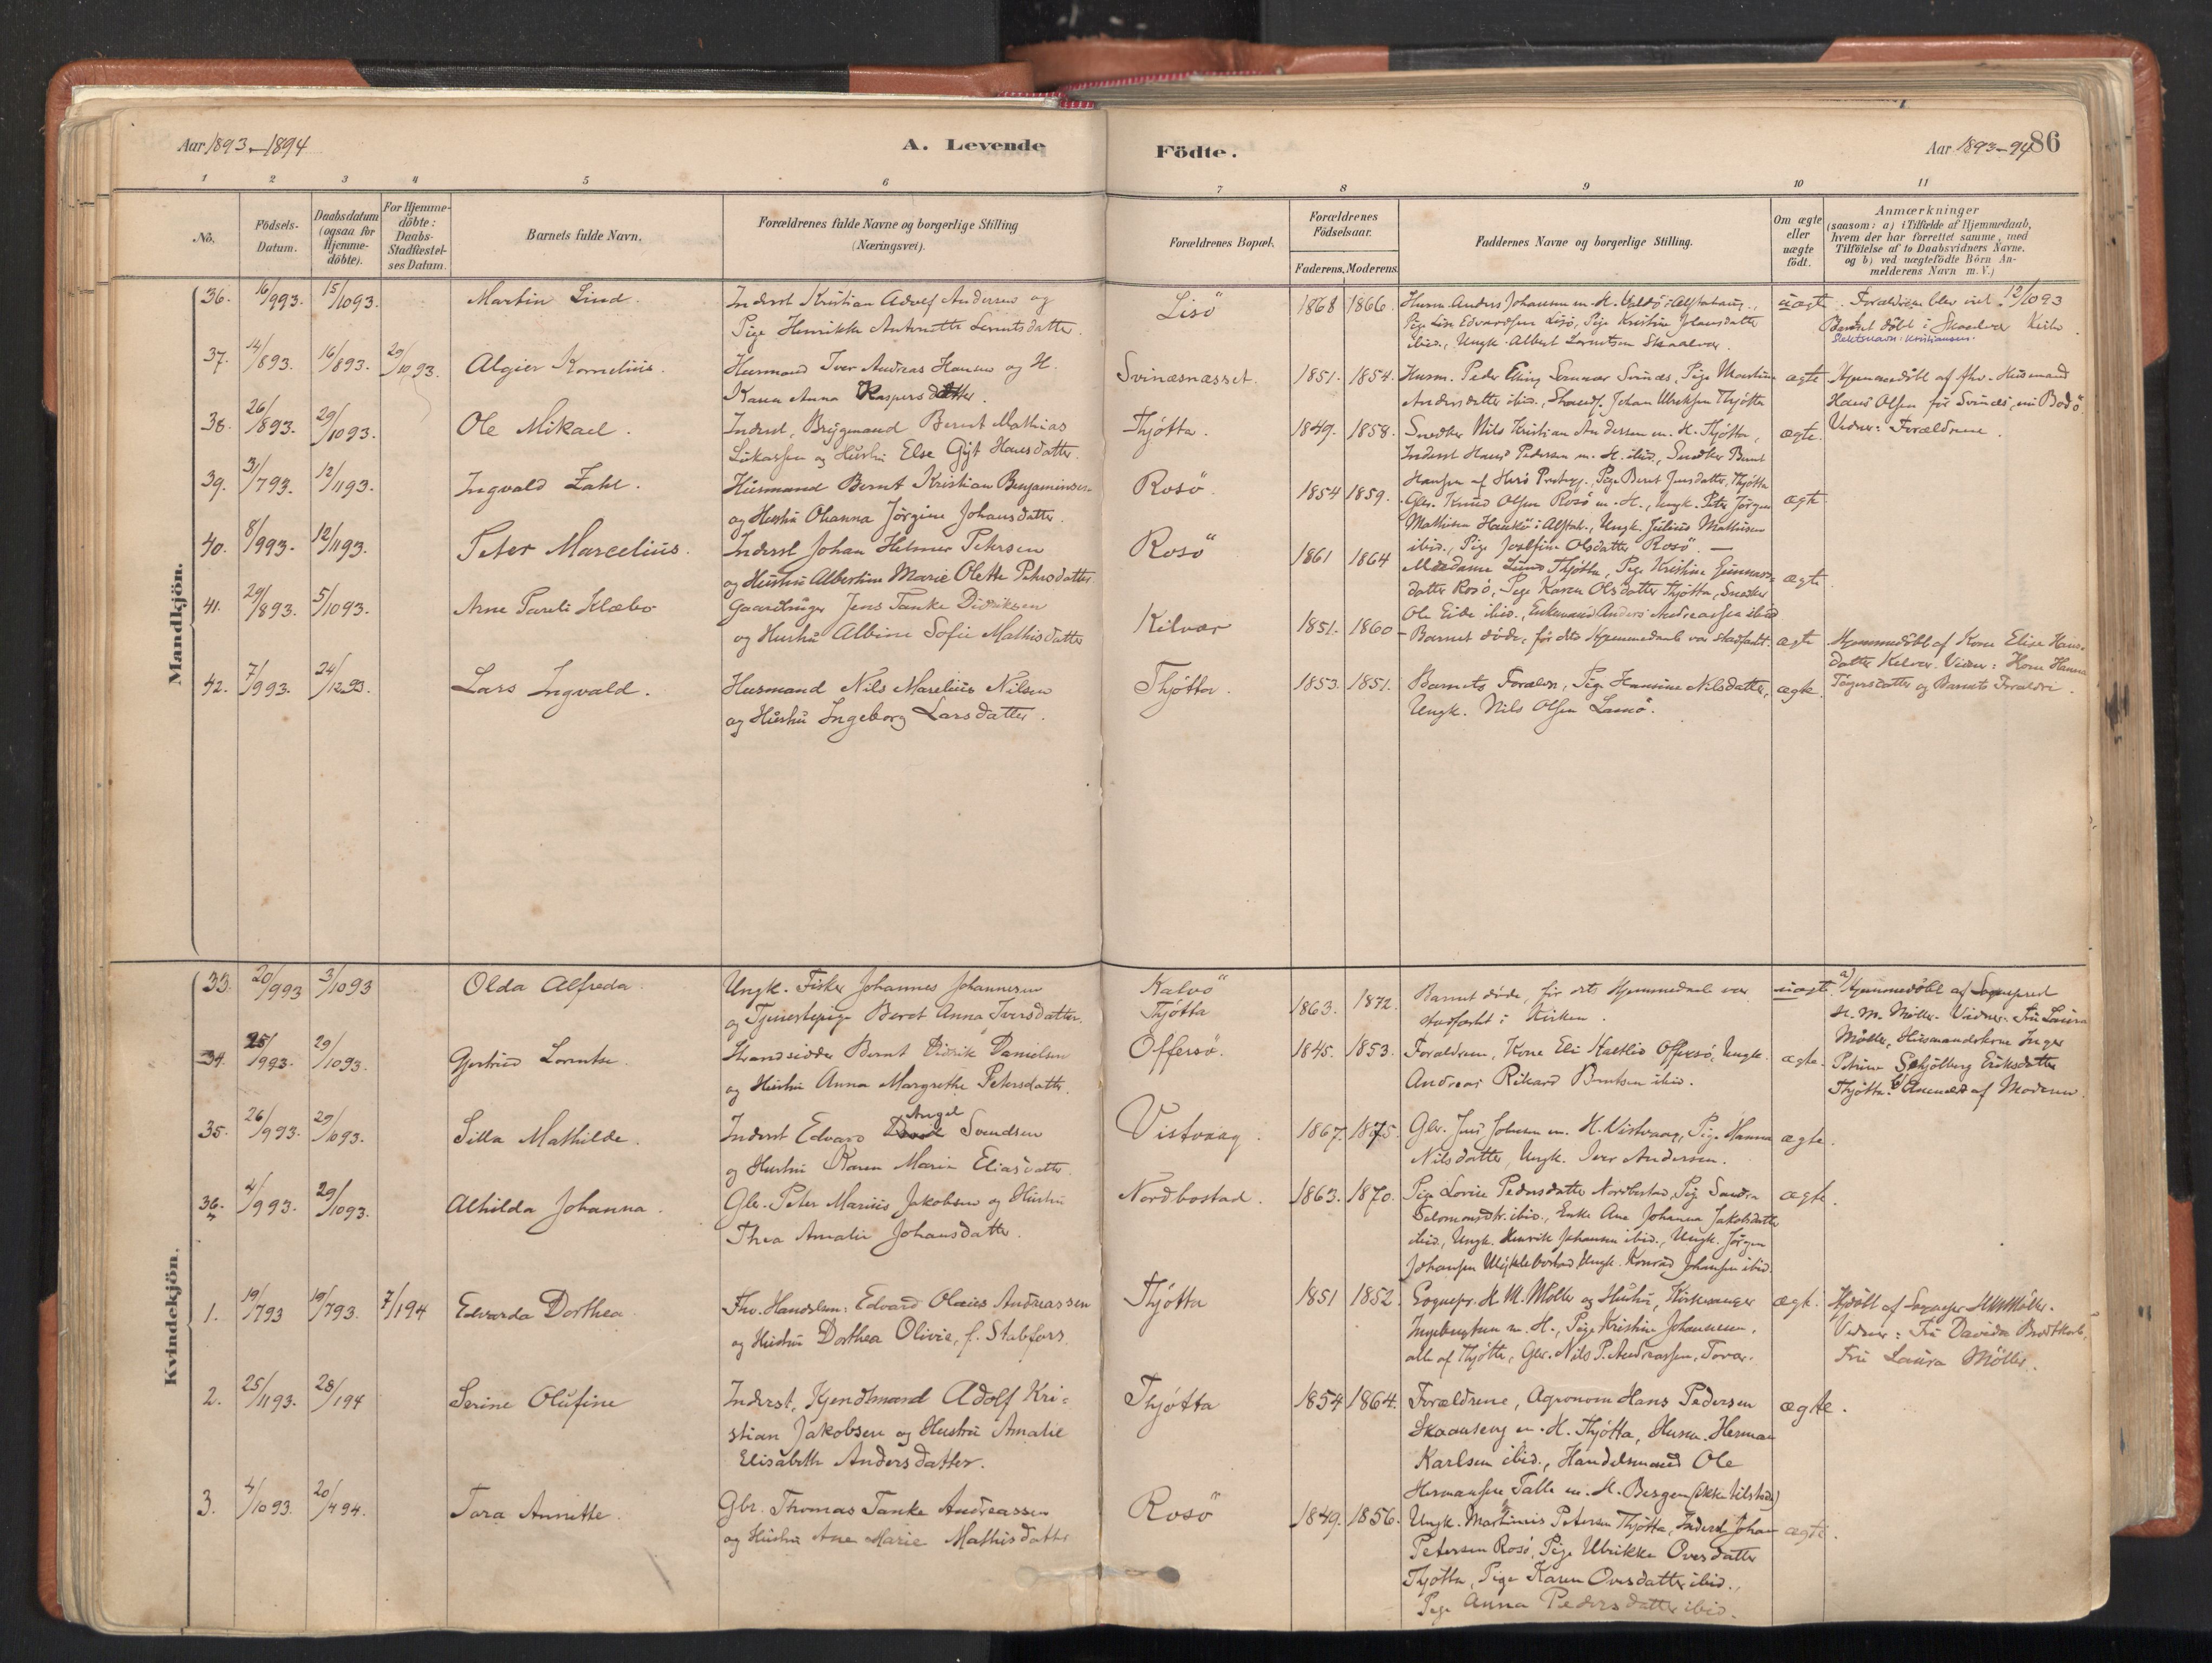 Aar 1893–1894
A. Levende
Födte.
Aar 1893–94
86
1
2
3
4
5
6
7
8
9
10
11
No.
Födsels-Datum.
Daabsdatum (ogsaa for Hjemme-döbte).
For Hjemme-döbte: Daabs-Stadfæstel-ses Datum.
Barnets fulde Navn.
Forældrenes fulde Navne og borgerlige Stilling
(Næringsvei).
Forældrenes Bopæl.
Forældrenes Födselsaar.
Faderens.
Moderens.
Faddernes Navne og borgerlige Stilling.
Om ægte eller uægte födt.
Anmærkninger
(saasom: a) i Tilfælde af Hjemmedaab,
hvem der har forrettet samme, med
Tilföielse af to Daabsvidners Navne.
og b) ved uægtefödte Börn An-
melderens Navn m. V.)
Mandkjön.
36. 16/9 93. 15/10 93. Martin Lind.
Inderst Kristian Adolf Andersen og
Pige Henrikke Antonette Lorntsdatter.
Lisö 1868 1866
Husm. Anders Johansen m. H. Valdö i Alstahaug,
Pige Lise Edvardsen Lisö, Pige Kristine Johansdatter
ibid., Ungk. Albert Lorntsen Skaalvær.
uægte. Forældrene blev viet 12/10 93
Barnet döbt i Skaalvær Kirke.
Slektsnavn: Kristiansen.
37. 14/8 93. 16/8 93. 29/10 93. Algier Kornelius.
Husmand Iver Andreas Hansen og H.
Karen Anna Kaspersdatter.
Svinæsnæsset. 1851. 1854.
Husm. Peder Elling Svinæs, Pige
Andersdatter ibid., Johan Ulriksen Thjötta
ægte Hjemmedöbt af fhv. Husmand
Hans Olsen för Svinæs, nu Bodö.
Vidner: Forældrene.
38. 26/8 93. 29/10 93. Ole Mikael.
Inderst, Brygmand Bernt Mathias
Lukassen og Hustru Else Gjt Hansdatter.
Thjötta. 1849. 1858.
Snedker Nils Kristian Andersen m. H. Thjötta,
Inderst Hans Pedersen m. H. ibid., Snedker Bernt
Hansen af Herö Prestegj., Pige Beret Jensdatter, Thjötta
ægte.
39. 31/7 93. 12/11 93. Ingvald Zahl.
Husmand Bernt Kristian Benjaminsen
og Hustru Ohanna Jörgine Johansdatter.
Rosö. 1854 1859.
Gbr. Knud Olsen Rosö m. H., Ungk. Peter Jörgen
Mathisen Haukö i Alstah., Ungk. Julius Mathisen
ibid., Pige Josefine Olsdatter Rosö.
ægte
40. 8/9 93. 12/11 93. Peter Marcelius.
Inderst Johan Helmer Petersen
og Hustru Albertine Marie Olette Petersdatter
Rosö 1861 1864
Madame Lund Thjötta, Pige Kristine Gunnars-
datter Rosö, Pige Karen Olsdatter Thjötta, Snedker
Ole Eide ibid., Enkemand Anders Andreassen ibid
ægte.
41. 29/8 93. 5/10 93. Arne Pareli Klæbo
Gaardbruger Jens Tanke Didriksen
og Hustru Albine Sofie Mathisdatter
Kilvær 1851. 1860
Barnet döde, för dets Hjemmedaab var stadfæst.
ægte Hjemmedöbt af Kone Elise Hans-
datter Kilvær. Vidner: Kone Hanna
og Barnets Forældre.
42. 7/9 93. 24/12 93. Lars Ingvald.
Husmand Nils Marelius Nilsen
og Hustru Ingeborg Larsdatter.
Thjötta. 1853. 1851.
Barnets Forældre, Pige Hansine Nilsdatter,
Ungk. Nils Olsen
ægte.
Kvindekjön.
33. 20/9 93 3/10 93 Olda Alfreda.
Ungk. Fisker Johannes Johannesen
og Tjenestepige Beret Anna Iversdatter.
Kalvö
Tjötta
1863. 1872.
Barnet döde, för dets Hjemmedaab var
stadfæstet i Kirken.
uægte. a) Hjemmedöbt af Sognepræst
H. M. Möller. Vidner: Fru Laura
Möller, Husmandskone Inger
Petrine Schjölberg Eriksdatter
Thjötta. b) Anmeldt af Moderen.
34. 25/9 93. 29/10 93. Gjertrud Lorntse.
Strandsidder Bernt Didrik Danielsen
og Hustru Anna Margrethe Petersdatter.
Offersö. 1845. 1853.
Forældrene, Kone Eli Offersö, Ungk.
Andreas Rikard Berntsen ibid.
ægte.
35. 26/9 93. 29/10 93. Silla Mathilde.
Inderst Edvard Angel Svendsen
og Hustru Karen Marie Eliasdatter.
Vistvaag. 1867. 1875.
Gbr. Jens Johnsen m. H. Vistvaag, Pige Hanna
Nilsdatter, Ungk. Iver Andersen.
ægte.
36. 4/9 93. 29/10 93. Alhilda Johanna.
Gbr. Peter Marius Jakobsen og Hustru
Thea Amalie Johansdatter.
Nordbostad. 1863. 1870.
Pige Lovise Pedersdatter Nordbostad, Pige Sandra
Salomonsdtr. ibid., Enke Ane Johanna Jakobsdatter
ibid., Ungk. Henrik Johansen ibid., Ungk. Jörgen
Johansen Ungk. Konrad Johansen ibid.
ægte.
1. 19/7 93 19/7 93. 7/1 94 Edvarda Dorthea.
Fhv. Handelsm. Edvard Olaus Andreassen
og Hustru Dorthea Olivia, f. Stabfors.
Thjötta 1851 1852.
Sognepr. H. M. Möller og Hustru, Kirkesanger
Ingebrigtsen m. H., Pige Kristine Johannesen,
alle af Thjötta, Gbr. Nils P. Andreassen, Tovær.
ægte. Hjdöbt af Sognepr. H M Möller.
Vidner: Fru Davida Brodtkorb,
Fru Laura Möller.
2. 25/11 93. 28/1 94 Serine Olufine
Inderst, Kjendtmand Adolf Kri-
stian Jakobsen og Hustru Amalie
Elisabeth Andersdatter.
Thjötta 1854 1864.
Forældrene, Agronom Hans Pedersen
m. H. Thjötta, Husm. Herman
Karlsen ibid., Handelsmand Ole
Hermansen Falle m. H. Bergen (ikke tilstede)
ægte.
3. 4/10 93. 20/4 94. Tora Annette.
Gbr. Thomas Tanke Andreassen
og Hustru Ane Marie Mathisdatter
Rosö 1849. 1856.
Ungk. Martinus Petersen Thjötta, Inderst Johan
Petersen Rosö, Pige Ulrikke Ovesdatter
Thjötta, Pige Karen Ovesdatter ibid.,
Pige Anna Pedersdatter ibid.
ægte.